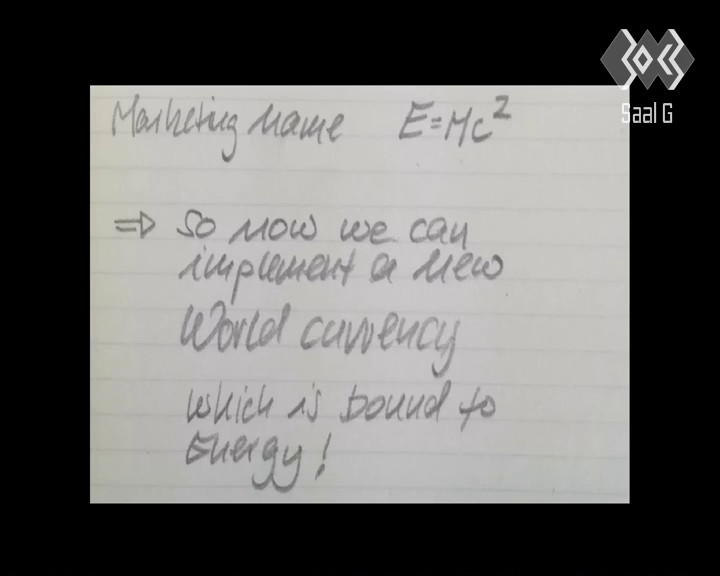 Saal G
Marketing name E=Mc²
⇒ So now we can
implement a new
World currency
which is bound to
Energy!